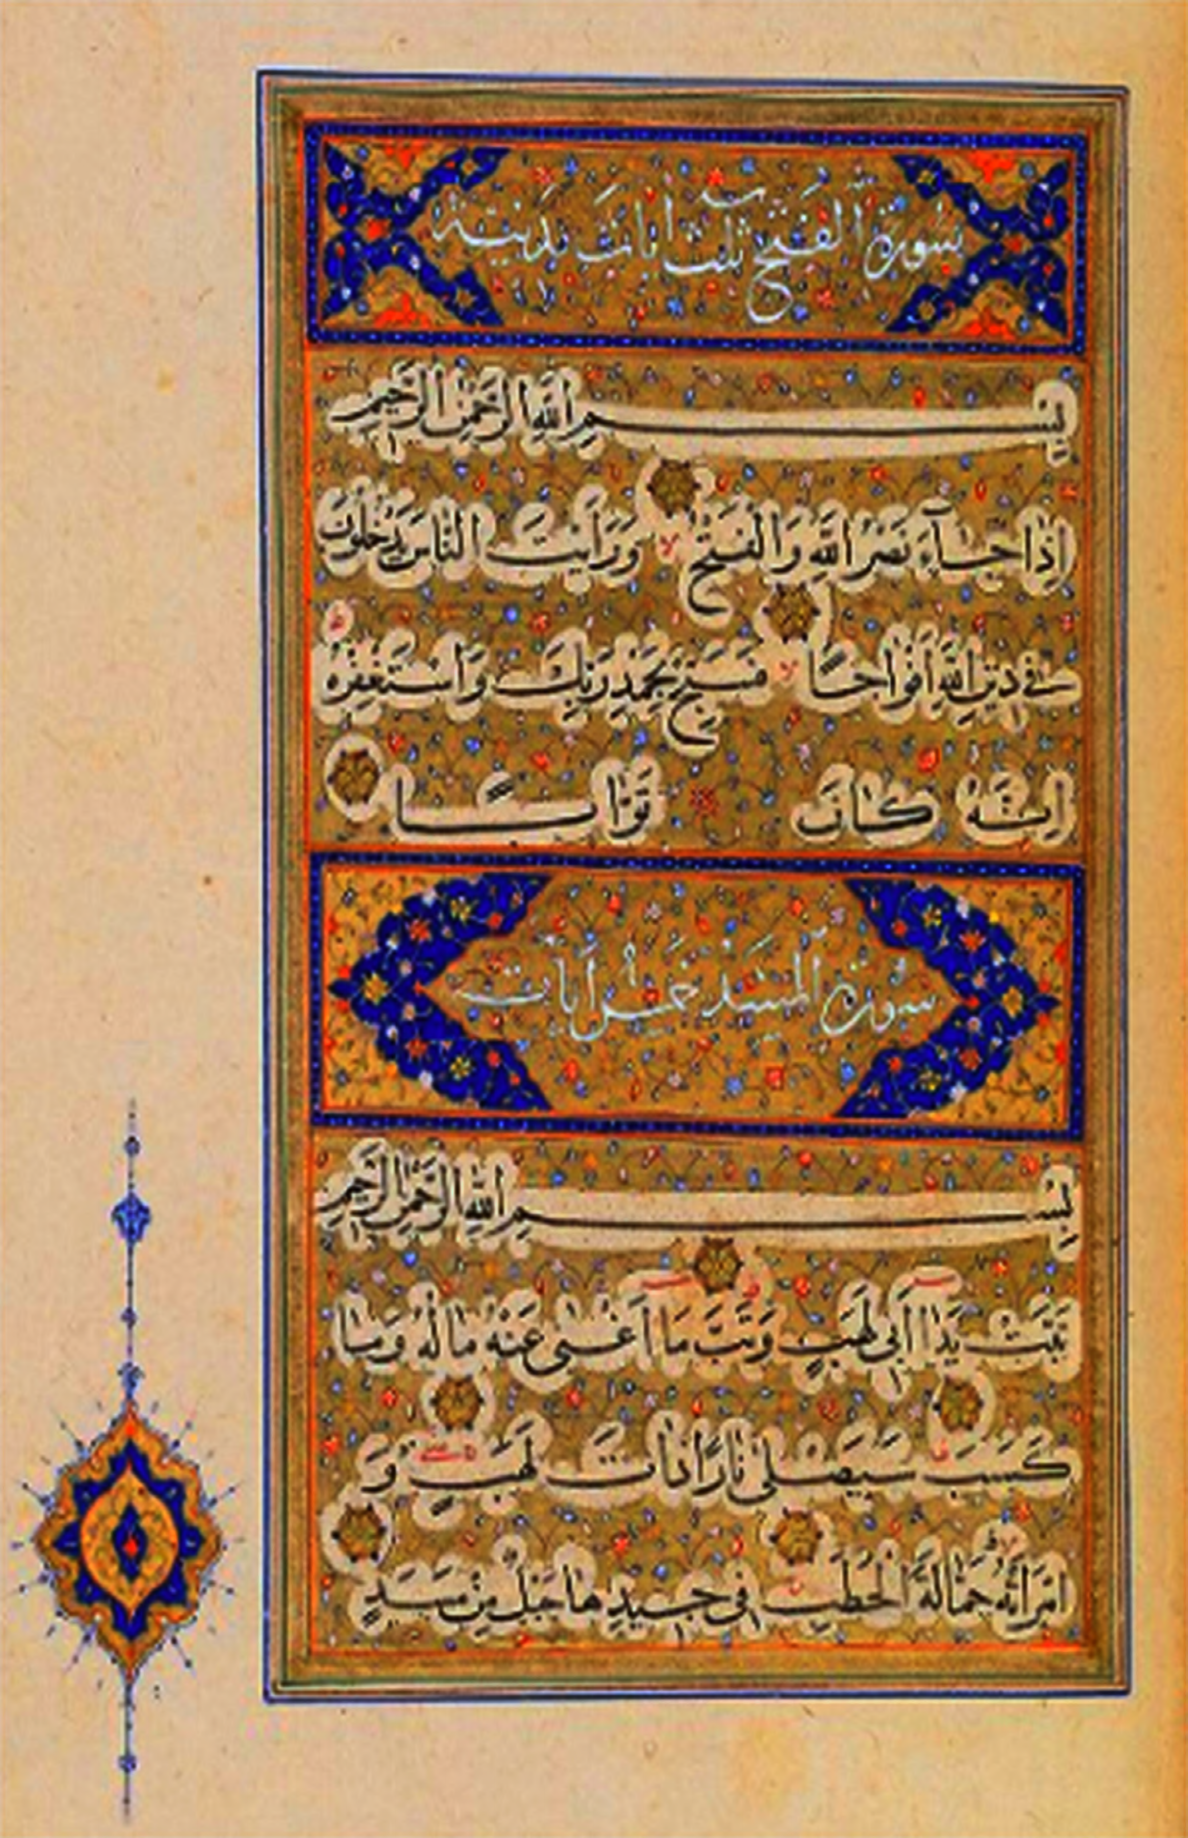 سورة الفتح ثلث ايات مدنية
بِسْمِ اللَّهِ الرَّحْمٰنِ الرَّحِيمِ
اِذَا جَآءَ نَصْرُ اللَّهِ وَالْفَتْحُ لا وَرَاَيْتَ النَّاسَ يَدْخُلُونَ
فِى دِينِ اللَّهِ اَفْوَاجًا لا فَسَبِّحْ بِحَمْدِ رَبِّكَ وَاسْتَغْفِرْهُ ط
اِنَّهُ كَانَ تَوَّابًا
سورة المسد خمس ايات
بِسْمِ اللَّهِ الرَّحْمٰنِ الرَّحِيمِ
تَبَّتْ يَدَا اَبِى لَهَبٍ وَتَبَّ مَا اَغْنٰى عَنْهُ مَالُهُ وَمَا
كَسَبَ سَيَصْلٰى نَارًا ذَاتَ لَهَبٍ وَ
امْرَاَتُهُ حَمَّالَةَ الْحَطَبِ فِى جِيدِهَا حَبْلٌ مِنْ مَسَدٍ